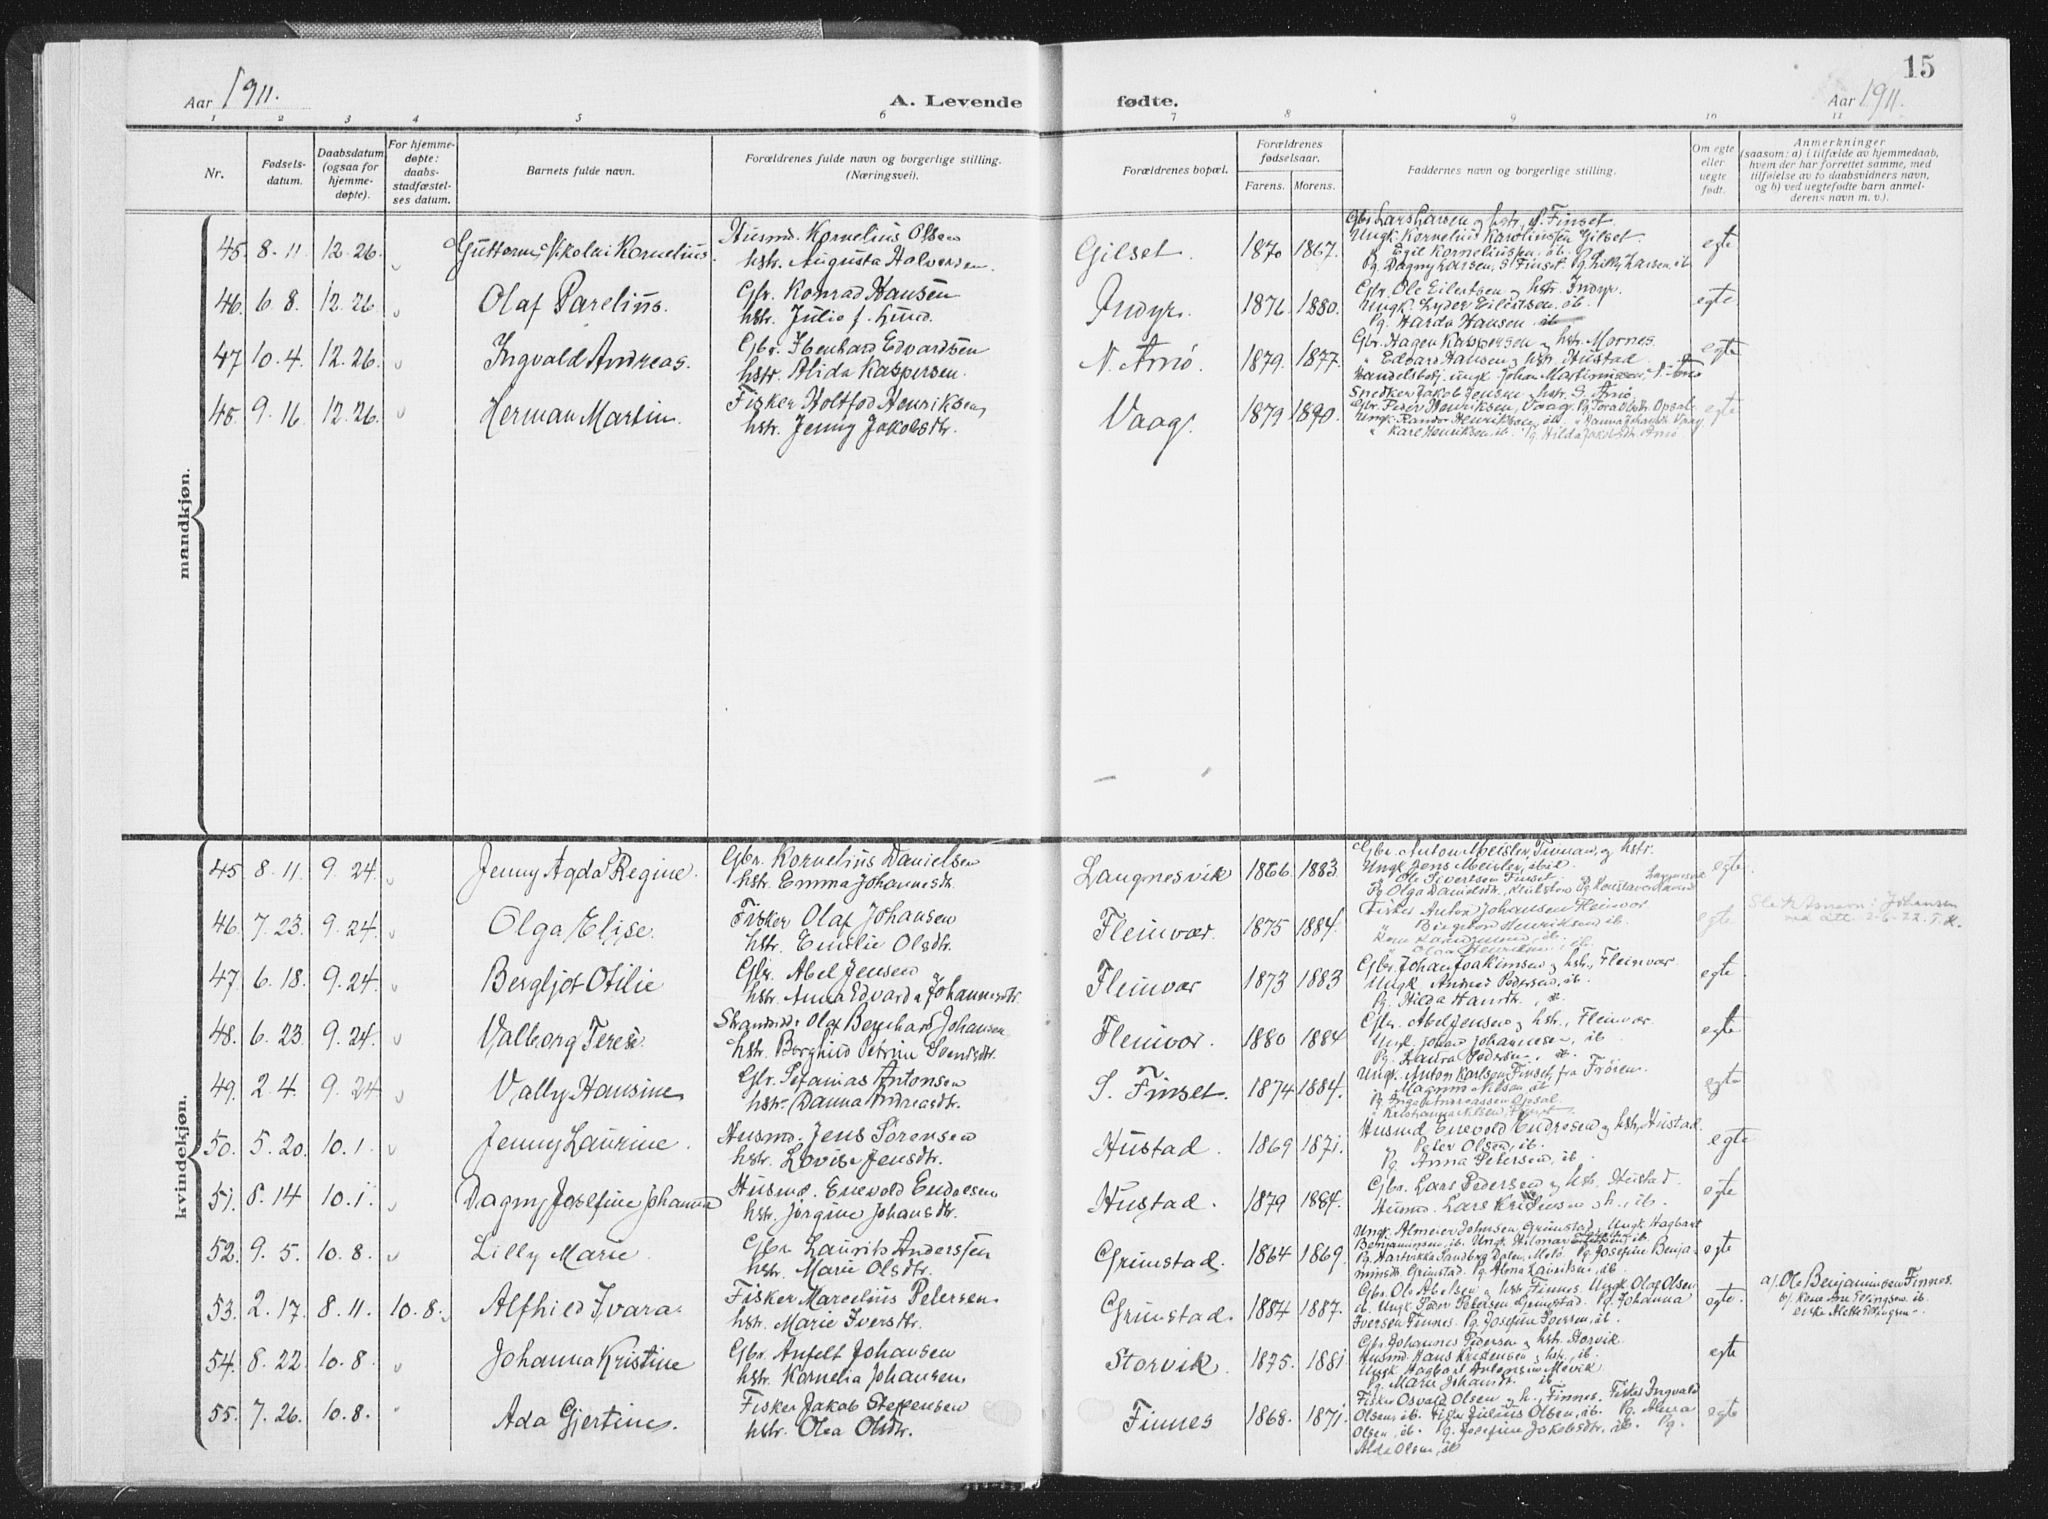 15
Aar 1911.
A. Levende fødte.
Aar 1911.
1 2 3 4 5 6 7 8 9 10 11
Nr.
Fødsels-
datum.
Daabsdatum
(ogsaa for
hjemme-
døpte).
For hjemme-
døpte:
daabs-
stadfæstel-
ses datum.
Barnets fulde navn.
Forældrenes fulde navn og borgerlige stilling.
(Næringsvei).
Forældrenes bopæl.
Forældrenes
fødselsaar.
Farens. Morens.
Faddernes navn og borgerlige stilling.
Om egte
eller
uegte
født.
Anmerkninger
(saasom: a) i tilfælde av hjemmedaab,
hvem der har forrettet samme, med
tilføielse av to daabsvidners navn,
og b) ved uegtefødte barn anmel-
derens navn m. v.).
mandkjøn.
45. 8. 11 12. 26. Guttorm Nikolai Kornelius.
Husmd. Kornelius Olsen
hstr. Augusta Halvorsen.
Gilset. 1870 1867.
Gbr. Lars Larsen og hstr. S. Finset
Ungk. Kornelius Karoliussen Gilset.
Egil Korneliussen, ib.
Pg. Dagny Larsen, S. Finset. Pg. Lilly Larsen, ib
egte
46. 6. 8. 12. 26 Olaf Parelius.
Gbr. Konrad Hansen
hstr. Julie f. Lund.
Indyr. 1876. 1880.
Gbr. Ole Eilertsen og hstr. Indyr.
Ungk. Lyder Eilertsen. ib.
Pg. Harda Hansen ib
egte
47 10. 4. 12. 26. Ingvald Andreas.
Gbr. Ibenhard Edvardsen
hstr. Alida Kaspersen.
N. Arnø. 1879. 1877.
Gbr. Hagen Kaspersen og hstr. Mornes.
" Edvard Hansen og hstr. Hustad
Handelsbetj. ungk. Johan Martinussen, N. Arnø
egte
48. 9. 16 12. 26. Herman Martin.
Fisker Holtfod Henriksen
hstr. Jenny Jakobsdtr.
Vaag. 1879 1890.
Snedker Jakob Jensen og hstr. S. Arnø.
Gbr. Peder Henriksen, Vaag. Pg. Tora Olsdtr. Opsal
Ungk. Randor Henriksen, ib. " Hanna Johansdtr. Vaag
" Karl Henriksen, ib. Pg. Hilda Jakobsdtr. Arnø
egte
kvindekjøn.
45 8. 11. 9. 24. Jenny Agda Regine.
Gbr. Kornelius Danielsen
hstr. Emma Johannesdtr.
Langnesvik 1866. 1883.
Gbr. Anton Meisler, og hstr.
Ungk. Jens Meisler, ibid.
" Ole Sivertsen Finset
Pg. Olga Danielsdtr.
egte
46. 7. 23. 9. 24. Olga Elise.
Fisker Olaf Johansen
hstr. Emilie Olsdtr.
Fleinvær. 1875 1884.
Fisker Anton Johansen Fleinvær.
" Birgiton Henriksen ib.
egte
Slektsnavn: Johansen
ved att. 2-6-22. T.K.
47. 6. 18. 9. 24. Bergljot Otilie
Gbr. Abel Jensen
hstr. Anna Edvarda Johannesdtr.
Fleinvær 1873 1883
Gbr. Johan Joakimsen og hstr., Fleinvær.
Ungk. Andreas Pedersen, ib.
Pg. Hilda Hansdtr., ib.
egte
48. 6. 23 9. 24. Valborg Terese.
Olaf Bernhard Johansen
hstr. Borghild Petrine Svendsdtr.
Fleinvær. 1880 1884
Gbr. Abel Jensen og hstr., Fleinvær.
Ungk. Johan Johannesen, ib
Pg. Laura Pedersen, ib.
egte
49. 2. 4. 9. 24 Vally Hansine
Gbr. Sefanias Antonsen
hstr. Danna Andreasdtr.
S. Finset. 1874 1884.
Ungk. Anton Karlsen Finset, fra Frøien.
" Magnus Nilsen ib
Pg. Inga Andreassen Opsal
" Kristianna Nilsen, Finset.
egte
50. 5. 20. 10. 1. Jenny Laurine.
Husmd. Jens Sørensen
hstr. Lovise Jensdtr.
Hustad. 1869 1871.
Husmd. Enevold Endresen og hstr. Hustad.
" Peter Olsen, ib.
Pg. Anna Petersen, ib.
egte
51. 8. 14 10. 1. Dagny Josefine Johanna
Husmd. Enevold Endresen
hstr. Jørgine Johansdtr.
Hustad. 1879 1884.
Gbr. Lars Pedersen og hstr. Hustad.
Husmd. Lars Kristensen og h., ib.
egte
52. 9. 5. 10. 8. Lilly Marie
Gbr. Laurits Andersen
hstr. Marie Olsdtr.
Grimstad. 1864 1869.
Ungk. Almeier Johnsen, Grimstad. Ungk. Hagbart
Benjaminsen, ib. Ungk. Hilmar ib.
Pg. Hartvikka Sandberg Dalen, Melø. Pg. Josefine Benja-
minsdtr. Grimstad. Pg. Alma Lauritsen, ib.
egte
53. 2. 17. 8. 11. 10. 8. Alfhild Ivara.
Fisker Marcelius Petersen
hstr. Marie Iversdtr.
Grimstad. 1884 1887.
Gbr. Ole Abelsen og hstr. Finnes. Ungk. Olaf Olsen
ib. Ungk. Peder Petersen Grimstad. Pg. Johanna
Iversen Finnes. Pg. Josefine Iversen, ib.
egte.
a). Ole Benjaminsen Finnes.
b). Kone Ane Ellingsen ib.
enke Alette Ellingsen.
54. 8. 22 10. 8. Johanna Kristine
Gbr. Anfelt Johansen
hstr. Kornelia Johansen.
Storvik. 1875. 1881
Gbr. Johannes Pedersen og hstr. Storvik.
Husmd. Hans Kristensen og hstr., ib.
Ungk. Hagbart Antonsen Mevik
Pg. Marie Johansdtr. ib.
egte
55. 7. 26. 10. 8. Ada Gjertine.
Fisker Jakob Steffensen
hstr. Olea Olsdtr.
Finnes 1868. 1871.
Fisker Osvald Olsen og h., Finnes. Fisker Ingvald
Olsen, ib. Fisker Julius Olsen, ib. Pg. Anna
Olsen, ib. Pg. Josefine Jakobsdtr., ib. Pg.
Alda Olsen, ib
egte